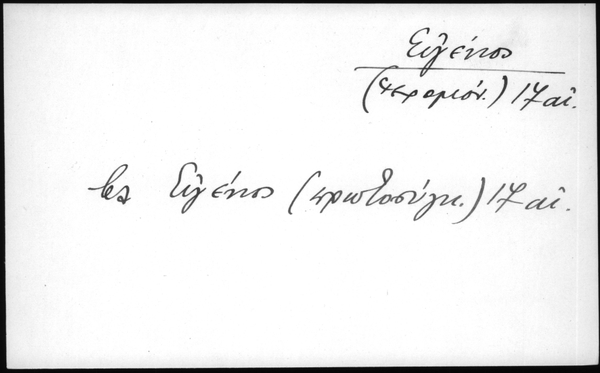 Εὐγένιος
(ἱερομόν.) 17 αἰ.
βλ Εὐγένιος (πρωτοσύγκ.) 17 αἰ.